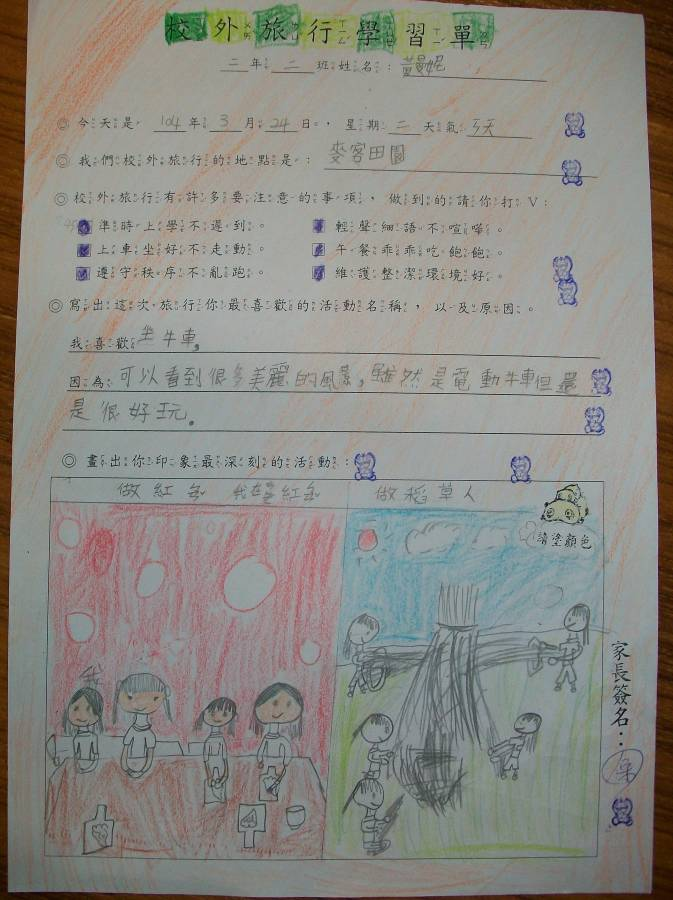 校外旅行學習單
二年二班姓名：黃曼妮
◎今天是 104年3月24日，星期二天氣
◎我們校外旅行的地點是：麥客田園
◎校外旅行有許多要注意的事項，做到的請你打V：
準時上學不遲到。 輕聲細語不喧嘩。
上車坐好不走動。 午餐乖乖吃飽飽。
遵守秩序不亂跑。 維護整潔環境好。
◎寫出這次旅行你最喜歡的活動名稱，以及原因。
我喜歡坐牛車。
因為可以看到很多美麗的風景，雖然是電動牛車但還
是很好玩。
◎畫出你印象最深刻的活動：
做紅 紅 做稻草人
請塗顏色
我
家長簽名：